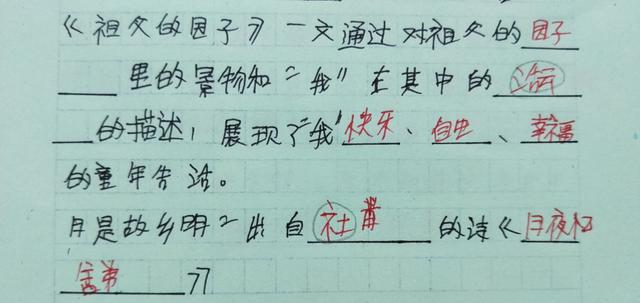 《祖父的因子》一文通过对祖父的因子
里的景物和“我”在其中的
的描述，展现了“我”快乐、自由、幸福
的童年生活。
月是故乡明”出自 的诗《月夜忆
舍弟》